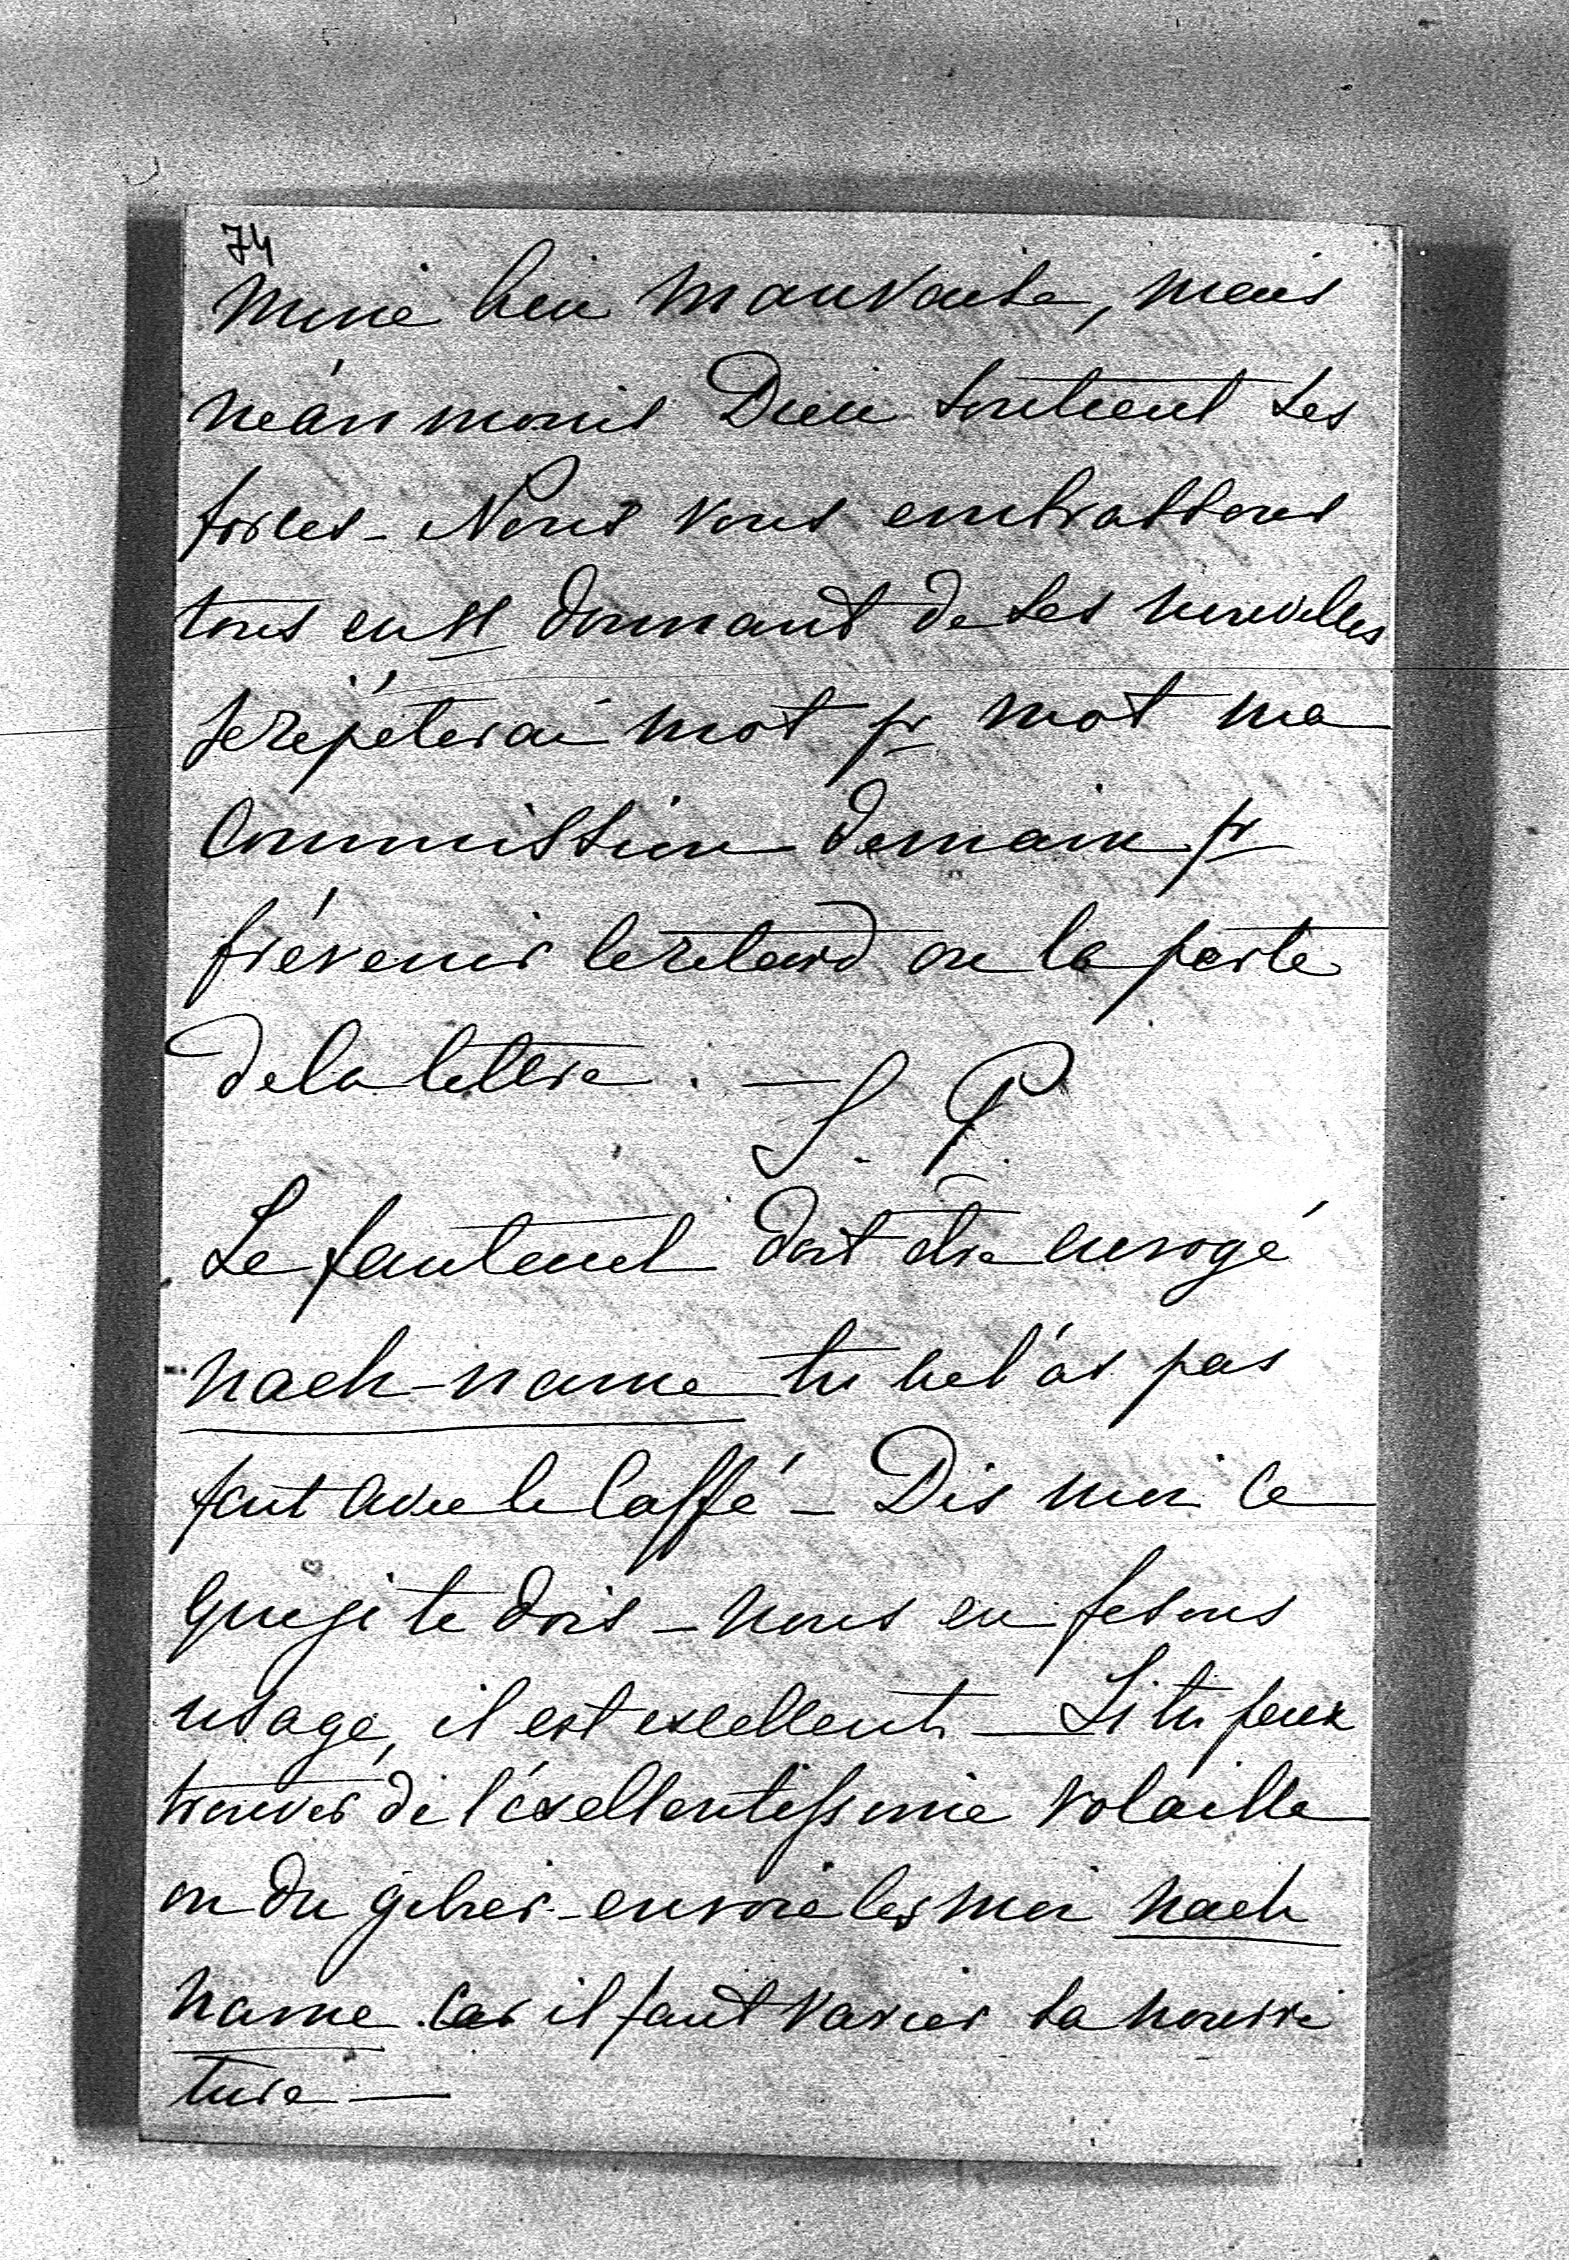 74
mine bien mauvaise, mais
néanmoins Dieu soutient ses
forces – Nous vous embrassons
tous en donnant de ses nouvelles
je répéterai mot pr mot ma
commission demain pr
prévenir le retard ou la perte
de la lettre. —
S. P.
Le fauteuil doit etre envoyé
nach-name tu nel'as pas
fait avec le Caffé – Dis moi ce
que je te dois – nous en fesons
usage, il est excellent – Si tu peux
trouver de l'éxellentissime volaille
ou du gibier – envoie les moi nach
name car il faut varier sa nourri
ture —